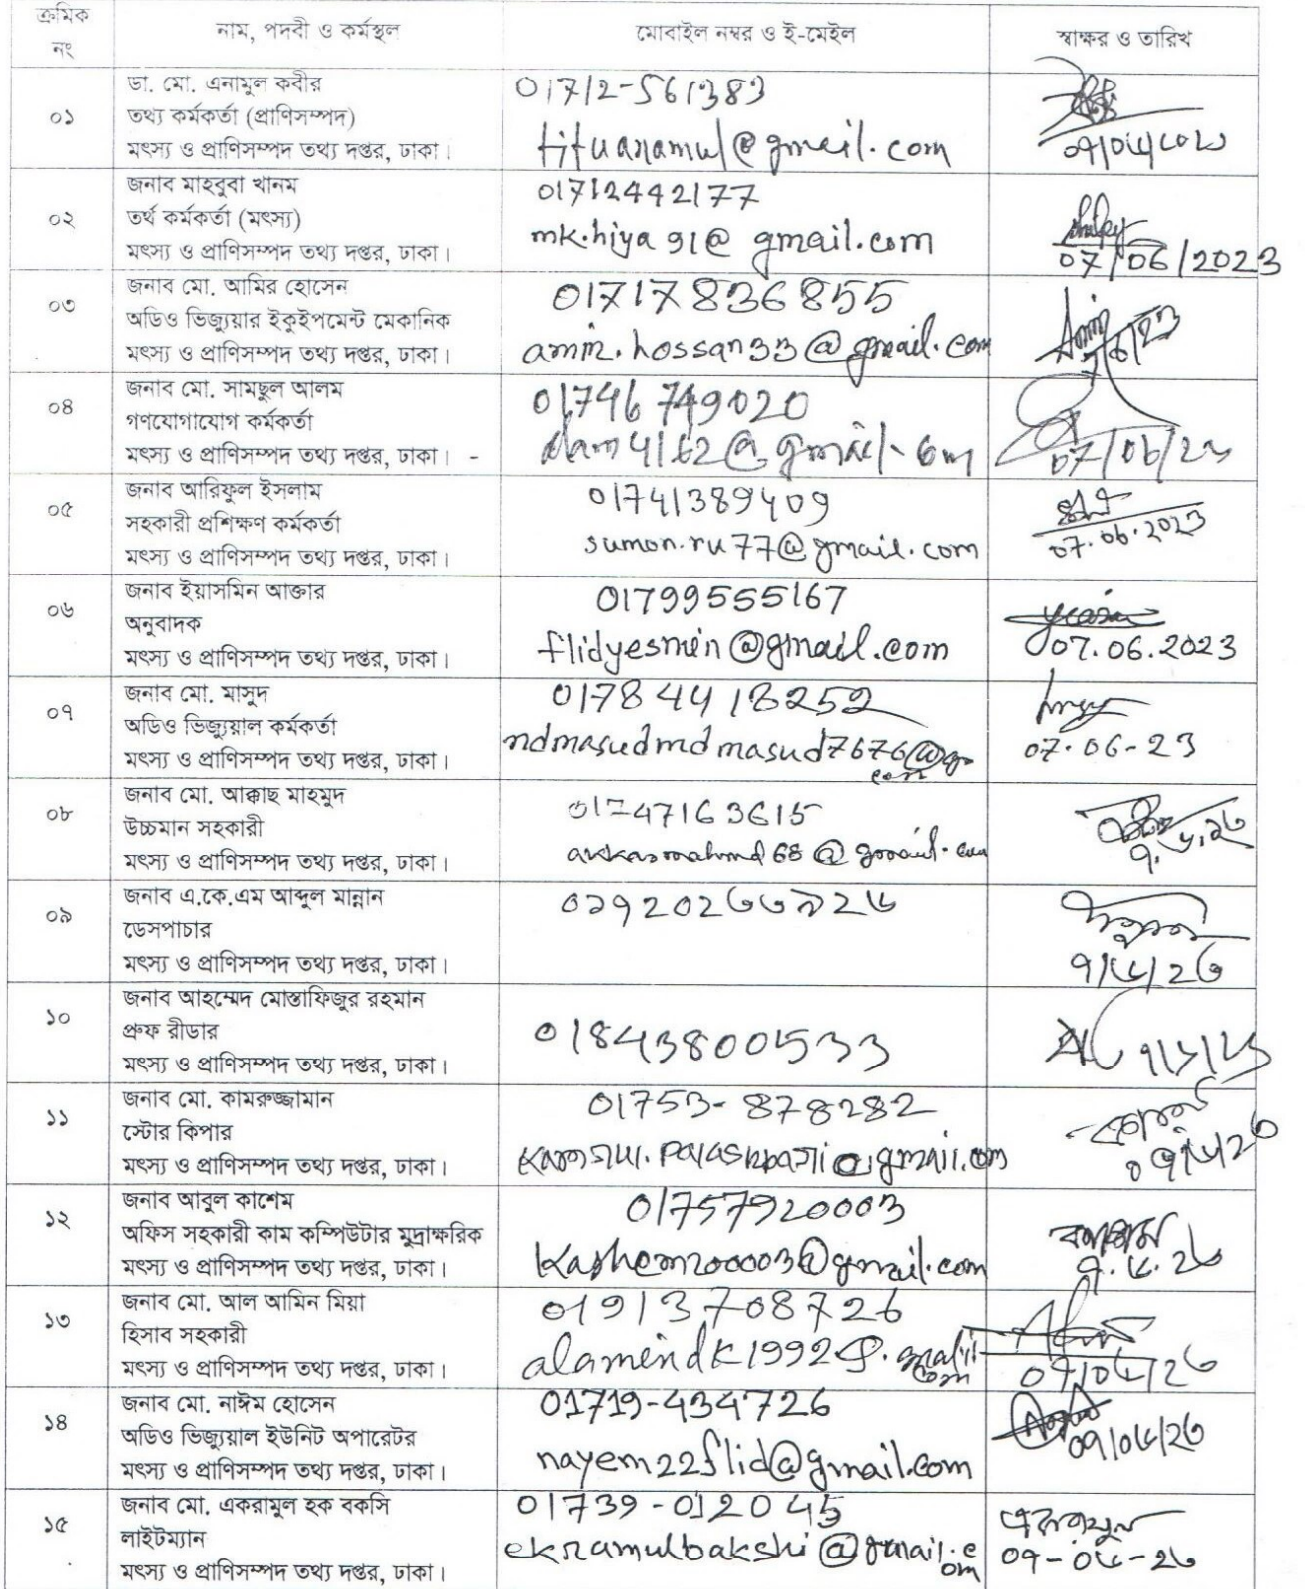 ক্রমিক নং	নাম, পদবী ও কর্মস্থল	মোবাইল নম্বর ও ই-মেইল	স্বাক্ষর ও তারিখ
০১
ডা. মো. এনামুল কবীর
তথ্য কর্মকর্তা (প্রাণিসম্পদ)
মৎস্য ও প্রাণিসম্পদ তথ্য দপ্তর, ঢাকা।
01712-561383
tituanamul@gmail.com
০২
জনাব মাহবুবা খানম
তর্থ কর্মকর্তা (মৎস্য)
মৎস্য ও প্রাণিসম্পদ তথ্য দপ্তর, ঢাকা।
01712442177
mk.hiya91@gmail.com
07/06/2023
০৩
জনাব মো. আমির হোসেন
অডিও ভিজ্যুয়ার ইকুইপমেন্ট মেকানিক
মৎস্য ও প্রাণিসম্পদ তথ্য দপ্তর, ঢাকা।
01717836855
০৪
জনাব মো. সামছুল আলম
গণযোগাযোগ কর্মকর্তা
মৎস্য ও প্রাণিসম্পদ তথ্য দপ্তর, ঢাকা। -
01746749020
alam4162@gmail.com
07/06/23
০৫
জনাব আরিফুল ইসলাম
সহকারী প্রশিক্ষণ কর্মকর্তা
মৎস্য ও প্রাণিসম্পদ তথ্য দপ্তর, ঢাকা।
01741389409
sumon.ru77@gmail.com
07.06.2023
০৬
জনাব ইয়াসমিন আক্তার
অনুবাদক
মৎস্য ও প্রাণিসম্পদ তথ্য দপ্তর, ঢাকা।
01799555167
flidyesmin@gmail.com
07.06.2023
০৭
জনাব মো. মাসুদ
অডিও ভিজ্যুয়াল কর্মকর্তা
মৎস্য ও প্রাণিসম্পদ তথ্য দপ্তর, ঢাকা।
01784418252
07.06-23
০৮
জনাব মো. আক্কাছ মাহমুদ
উচ্চমান সহকারী
মৎস্য ও প্রাণিসম্পদ তথ্য দপ্তর, ঢাকা।
01747163615
৭.৬.২৩
০৯
জনাব এ.কে.এম আব্দুল মান্নান
ডেসপাচার
মৎস্য ও প্রাণিসম্পদ তথ্য দপ্তর, ঢাকা।
৭/৬/২৩
১০
জনাব আহম্মেদ মোস্তাফিজুর রহমান
প্রুফ রীডার
মৎস্য ও প্রাণিসম্পদ তথ্য দপ্তর, ঢাকা।
01843800533
১১
জনাব মো. কামরুজ্জামান
স্টোর কিপার
মৎস্য ও প্রাণিসম্পদ তথ্য দপ্তর, ঢাকা।
01753-878282
১২
জনাব আবুল কাশেম
অফিস সহকারী কাম কম্পিউটার মুদ্রাক্ষরিক
মৎস্য ও প্রাণিসম্পদ তথ্য দপ্তর, ঢাকা।
01757920003
kashem200003@gmail.com
৭.৬.২৩
১৩
জনাব মো. আল আমিন মিয়া
হিসাব সহকারী
মৎস্য ও প্রাণিসম্পদ তথ্য দপ্তর, ঢাকা।
01913708726
০৭/০৬/২৩
১৪
জনাব মো. নাঈম হোসেন
অডিও ভিজ্যুয়াল ইউনিট অপারেটর
মৎস্য ও প্রাণিসম্পদ তথ্য দপ্তর, ঢাকা।
01719-434726
nayem22flid@gmail.com
০৭/০৬/২৩
১৫
জনাব মো. একরামুল হক বকসি
লাইটম্যান
মৎস্য ও প্রাণিসম্পদ তথ্য দপ্তর, ঢাকা।
01739-012045
ekramulbakshi@gmail.com
০৭-০৬-২৩